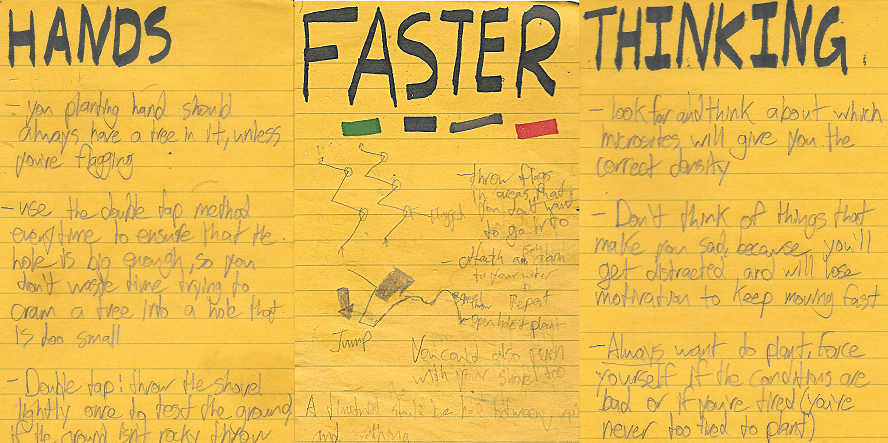 HANDS
- you planting hand should
always have a tree in it, unless
you're flagging
- use the double tap method
everytime to ensure that the
hole is big enough, so you
don't waste time trying to
cram a tree into a hole that
is too small
- Double tap: throw the shovel
lightly once to test the ground,
if the ground isnt rocky throw
FASTER
- throw flags
in areas that
you don't want
to go into
flagged
- Attach an
to your
Jump
Repeat
open hole & plant
You could also push
with your shovel too
A should be between
and
THINKING
- look for and think about which
microsites will give you the
correct density
- Don't think of things that
make you sad, because you'll
get distracted and will lose
motivation to keep moving fast
- Always want to plant, force
yourself if the conditions are
bad or if you're tired (you're
never too tired to plant)